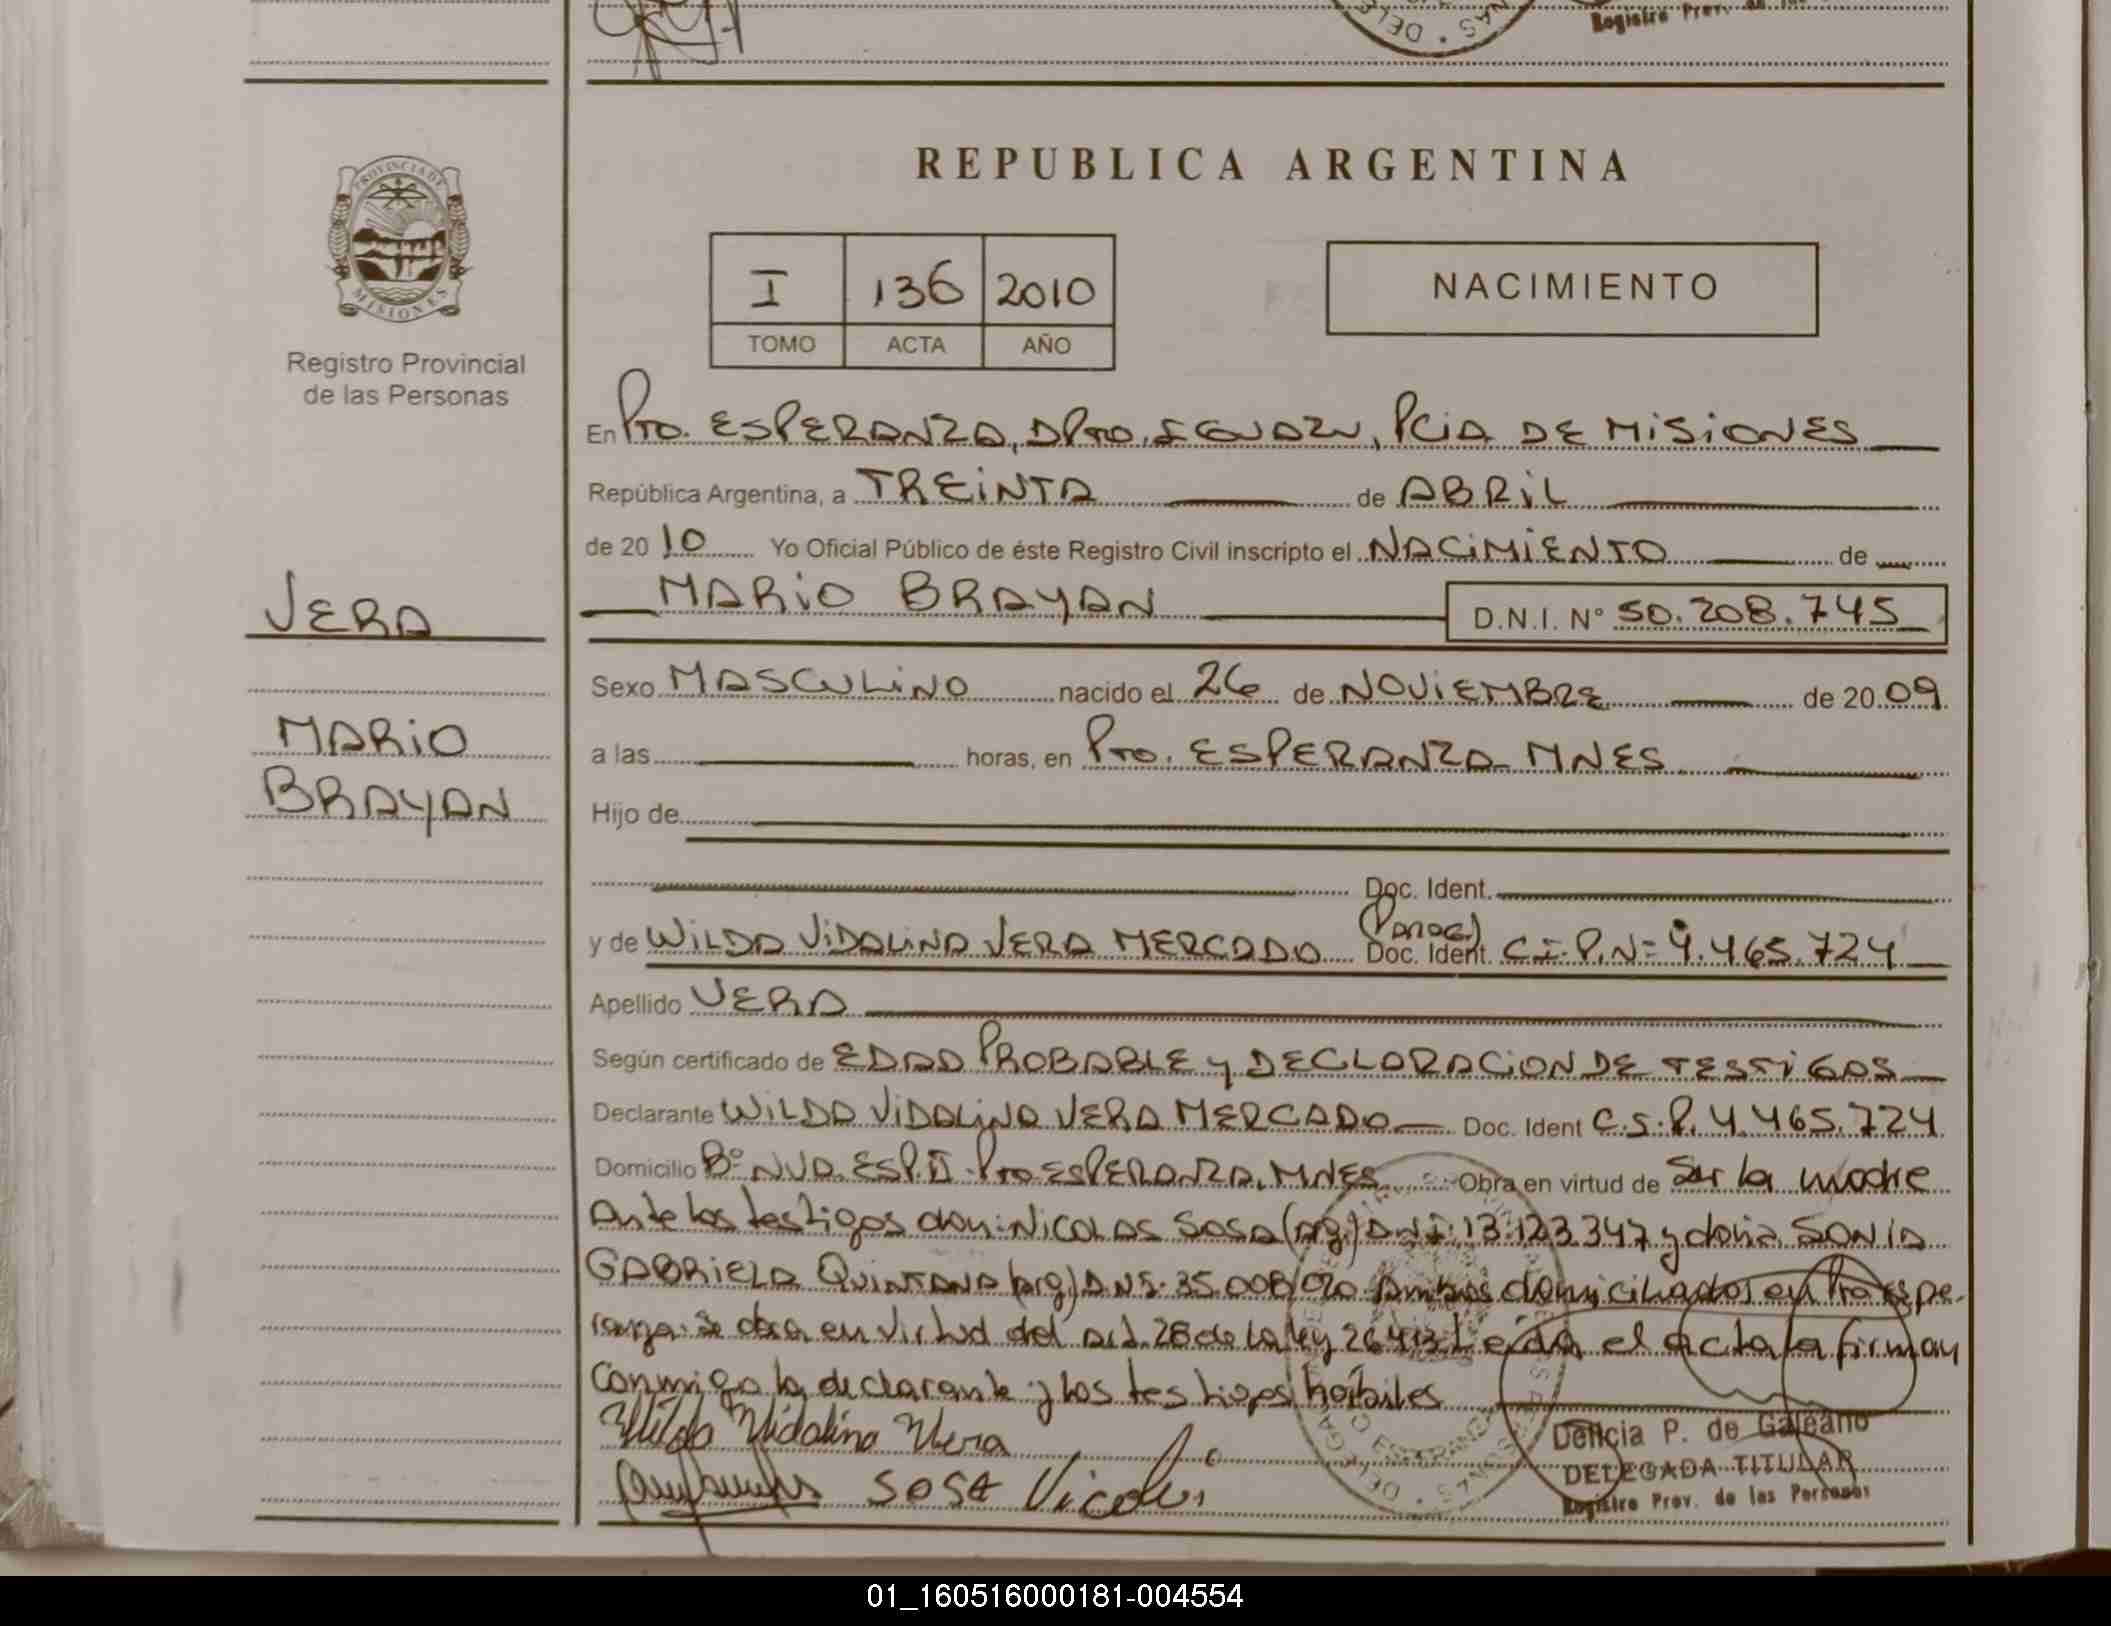 Registro Prov. de las
REPUBLICA ARGENTINA
PROVINCIA DE
MISIONES
Registro Provincial
de las Personas
I 136 2010
TOMO ACTA AÑO
NACIMIENTO
En Pto. ESPERANZA, DPTO. IGUAZU, PCIA DE MISIONES
República Argentina, a TREINTA de ABRIL
de 2010 Yo Oficial Público de éste Registro Civil inscripto el NACIMIENTO de
MARIO BRAYAN D.N.I. N° 50.208.745
VERA
MARIO
BRAYAN
Sexo MASCULINO nacido el 26 de NOVIEMBRE de 2009
a las horas, en Pto. ESPERANZA MNES
Hijo de
Doc. Ident.
y de WILDA VIDALINA VERA MERCADO (Parag.) Doc. Ident. C.I.P.N= 4.465.724
Apellido VERA
Según certificado de EDAD PROBABLE y DECLARACION DE TESTIGOS
Declarante WILDA VIDALINA VERA MERCADO Doc. Ident C.I.P. 4.465.724
Domicilio B° NVA. ESP. II - Pto ESPERANZA, MNES Obra en virtud de Ser la madre
Ante los testigos don: NICOLAS SOSA (arg.) DNI: 13.123.347 y doña SONIA
GABRIELA QUINTANA (arg.) DNI. 35.008.020 Ambos domiciliados en Pto Espe-
ranza. Se obra en virtud del art. 28 de la ley 26.413 Leída el acta la firman
Conmigo la declarante y los testigos hábiles
Wilda Vidalina Vera
SOSA Nicolas
Delicia P. de Galeano
DELEGADA TITULAR
Registro Prov. de las Personas
01_160516000181-004554